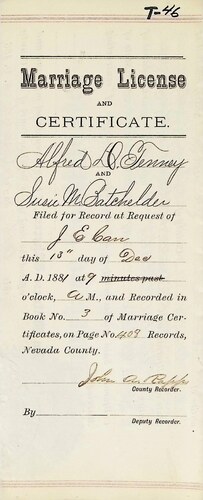 T-46
Marriage License
AND
CERTIFICATE.
Alfred D. Tenney
AND
Susie M. Batchelder
Filed for Record at Request of
J E Carr
this 13th day of Dec
A. D. 1881 at 9 minutes past
o'clock, A M., and Recorded in
Book No. 3 of Marriage Cer-
tificates, on Page No. 408 Records,
Nevada County.
John A. Rapp
County Recorder.
By
Deputy Recorder.